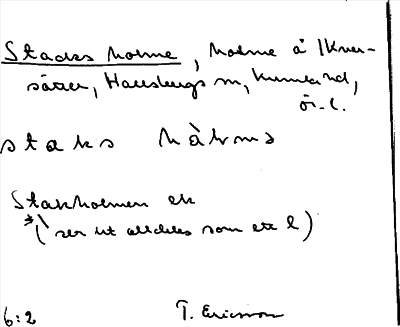 Stacks holme, holme å Kner-
sätter, Hallsbergs sn, Kumla hd,
ör. l.
staks hàlms
Stakholmen ek
*( ser ut alldeles som ett l )
6:2 T. Ericsson